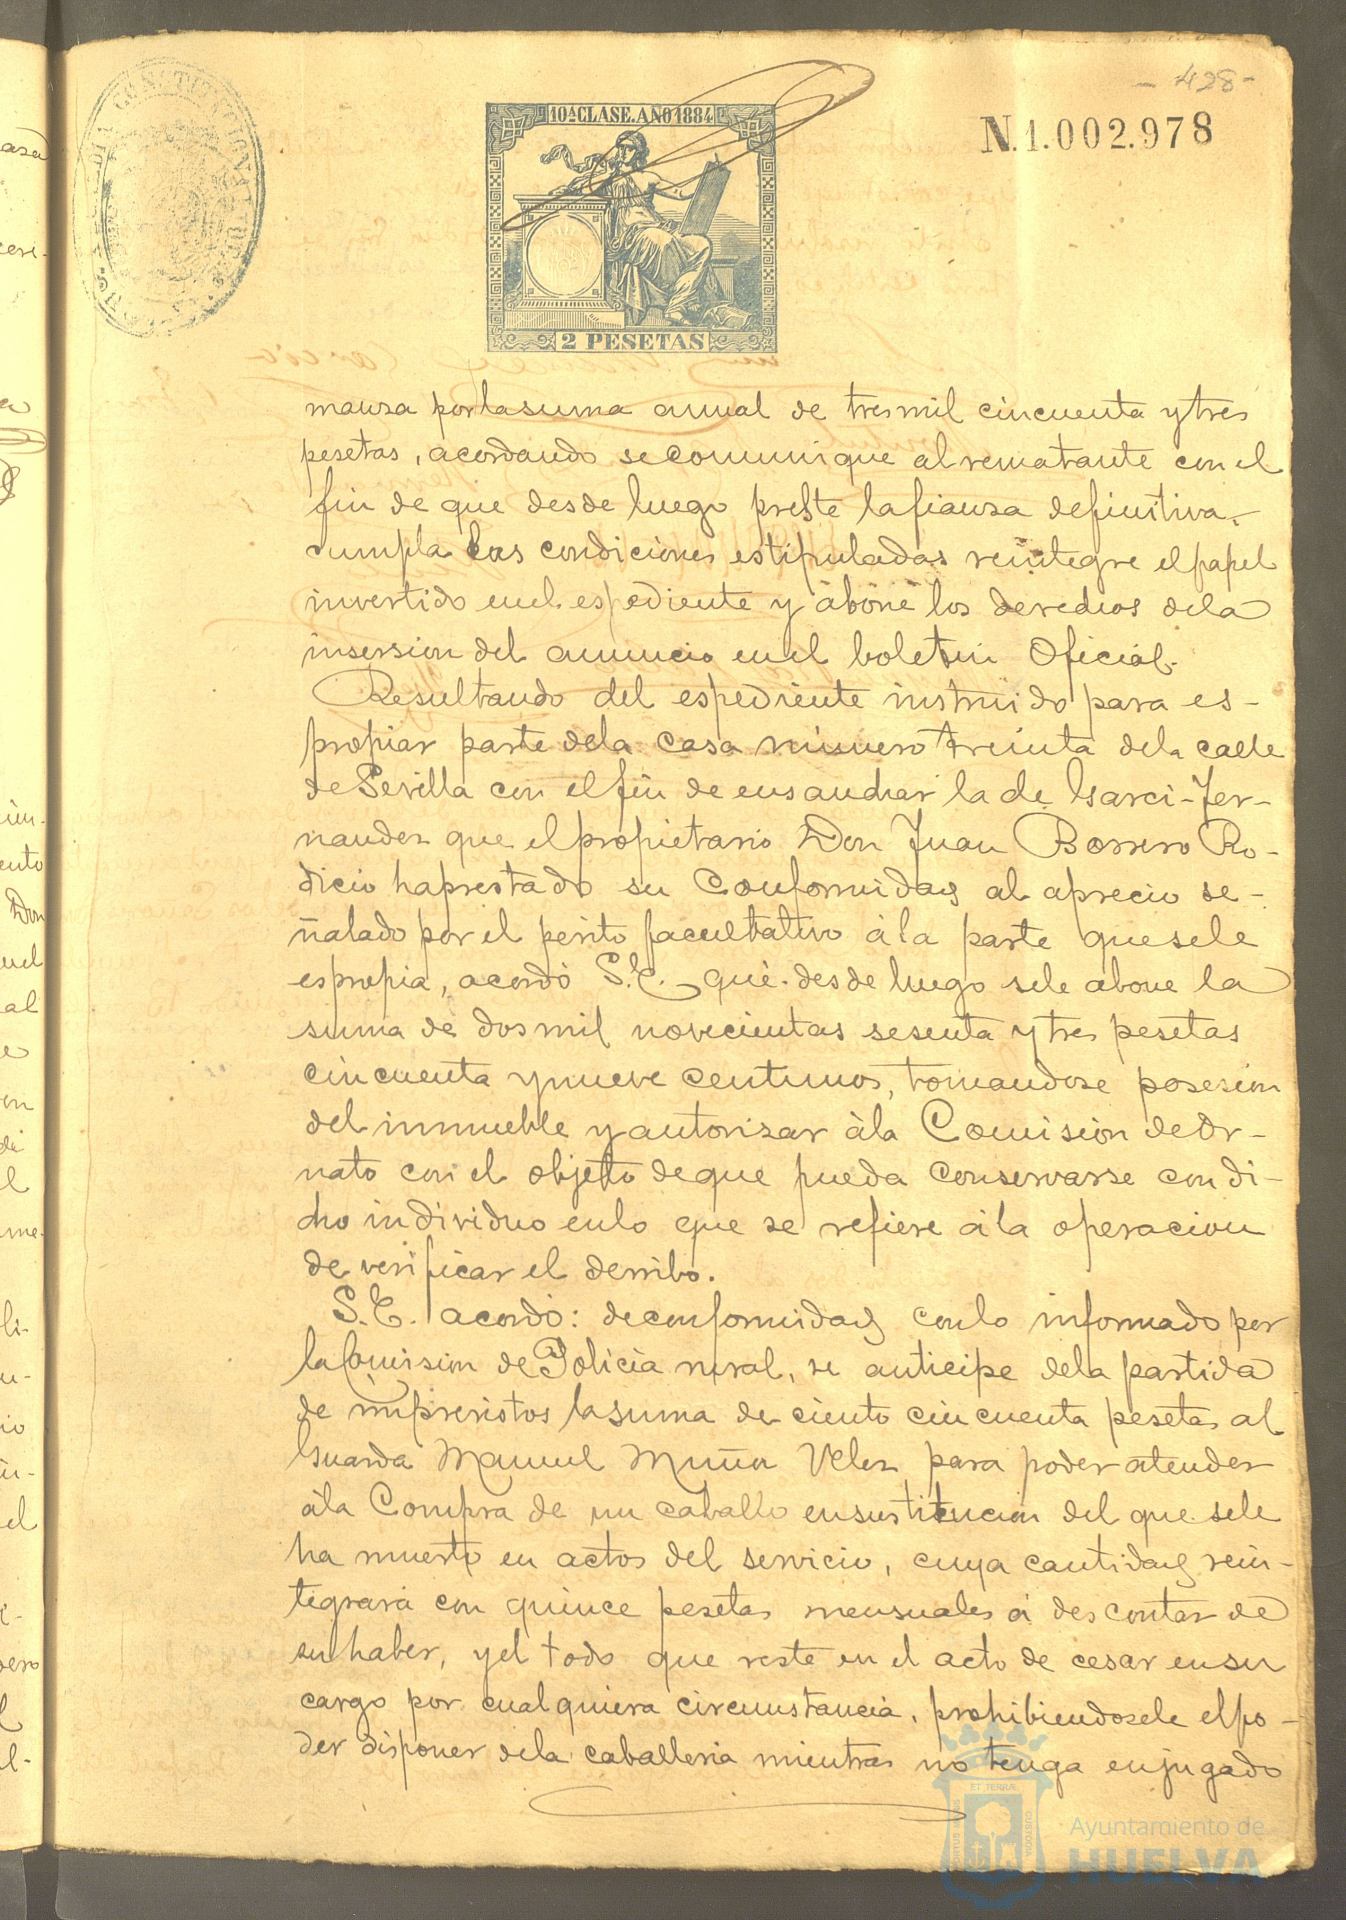 - 428 -
CONSTITUCIONAL
10ª CLASE. AÑO 1884
N.1.002.978
2 PESETAS
manza por la suma anual de tres mil cincuenta y tres
pesetas, acordando se comunique al rematante con el
fin de que desde luego preste la fianza definitiva,
cumpla las condiciones estipuladas reintegre el papel
invertido en el espediente y abone los derechos de la
insersion del anuncio en el boletin Oficial.
Resultando del espediente instruido para es-
propiar parte de la casa número treinta de la calle
de Sevilla con el fin de ensanchar la de Garci-Fer-
nandez que el propietario Don Juan Borrero Ro-
dicio ha prestado su Conformidad al aprecio se-
ñalado por el perito facultativo á la parte que se le
espropia, acordó S.E. que desde luego se le abone la
suma de dos mil novecientas sesenta y tres pesetas
cincuenta y nueve centimos, tomandose posesion
del inmueble y autorizar á la Comision de Or-
nato con el objeto de que pueda conservarse con di-
cho individuo en lo que se refiere á la operacion
de verificar el derribo.
S.E. acordó: de conformidad con lo informado por
la Comision de Policia rural, se anticipe de la partida
de imprevistos la suma de ciento cincuenta pesetas al
Guarda Manuel Muñoz Velez para poder atender
á la Compra de un caballo en sustitucion del que se le
ha muerto en actos del servicio, cuya cantidad rein-
tegrará con quince pesetas mensuales á descontar de
su haber, y el todo que reste en el acto de cesar en su
cargo por cualquiera circunstancia, prohibiendosele el po-
der disponer de la caballeria mientras no tenga enjugado
ET TERRÆ
CUSTODIA
Ayuntamiento de
HUELVA